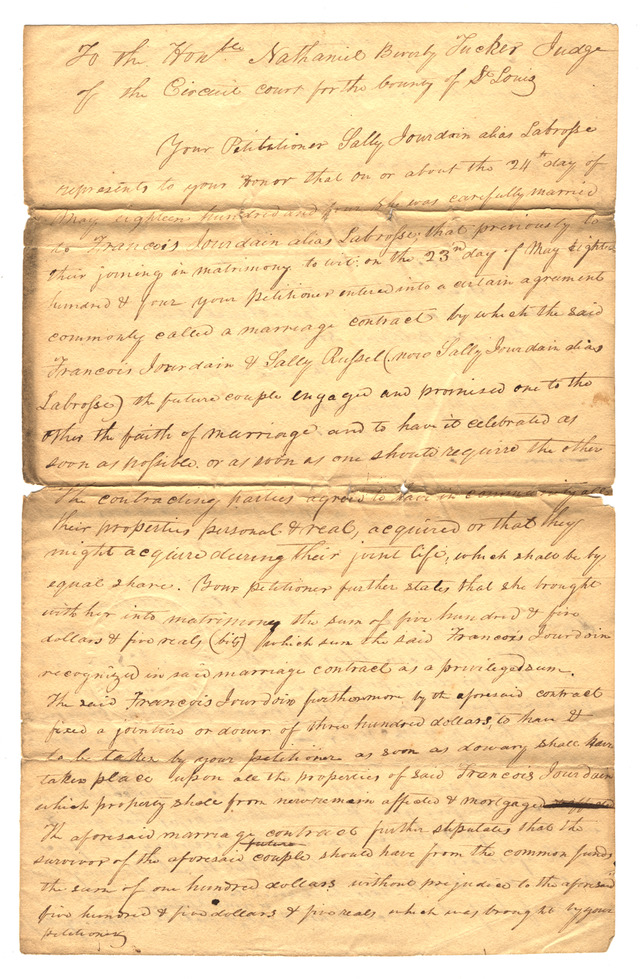 To the Hon^ble Nathaniel Beverly Tucker Judge
of the Circuit court for the County of St Louis
Your Petitioner Sally Jourdain alias Labrosse
represents to your Honor that on or about the 24th day of
May eighteen hundred and four she was carefully married
to Francois Jourdain alias Labrosse that previously to
their joining in matrimony to wit: on the 23rd day of May Eighteen
hundred & four your petitioner entered into a certain agreement
commonly called a marriage contract by which the said
Francois Jourdain & Sally Russel (now Sally Jourdain alias
Labrosse) the future couple engaged and promised one to the
other the faith of marriage and to have it celebrated as
soon as possible or as soon as one should requirre the other
The contracting parties agreed to have in community all
their properties personal & real, acquired or that they
might acquire during their joint life, which shall be by
equal share. Your petitioner further states that she brought
with her into matrimony the sum of five hundred & five
dollars & five reals (bits) which sum the said Francois Jourdain
recognized in said marriage contract as a privileged sum.
The said Francois Jourdain furthermore by the aforesaid contract
fixed a jointure or dower of three hundred dollars, to have &
to be taken by your petitioner as soon as dowary shall have
taken place upon all the properties of said Francois Jourdain
which property shall from now remain affected & mortgaged
The aforesaid marriage contract further stipulates that the
survivor of the aforesaid future couple should have from the common funds
the sum of one hundred dollars without prejudice to the aforesaid
five hundred & five dollars & five reals which was brought by your
petitioner